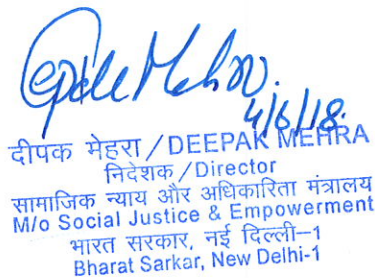 4/6/18.
दीपक मेहरा / DEEPAK MEHRA
निदेशक / Director
सामाजिक न्याय और अधिकारिता मंत्रालय
M/o Social Justice & Empowerment
भारत सरकार, नई दिल्ली–1
Bharat Sarkar, New Delhi-1